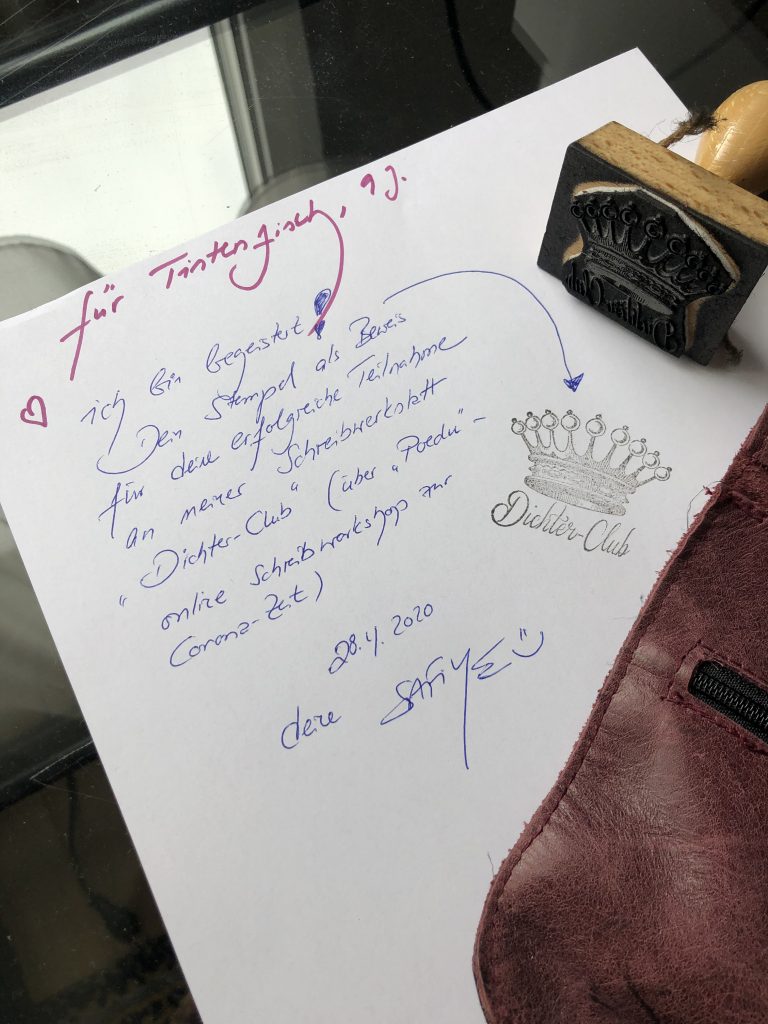 für Tintenfisch, 9 J.
ich bin begeistert!
Dein Stempel als Beweis
für deine erfolgreiche Teilnahme
an meiner Schreibwerkstatt
"Dichter-Club" (über "Poedu" -
online Schreibworkshop zur
Corona-Zeit)
28.4. 2020
deine SAFIYE
Dichter-Club
Dichter-Club